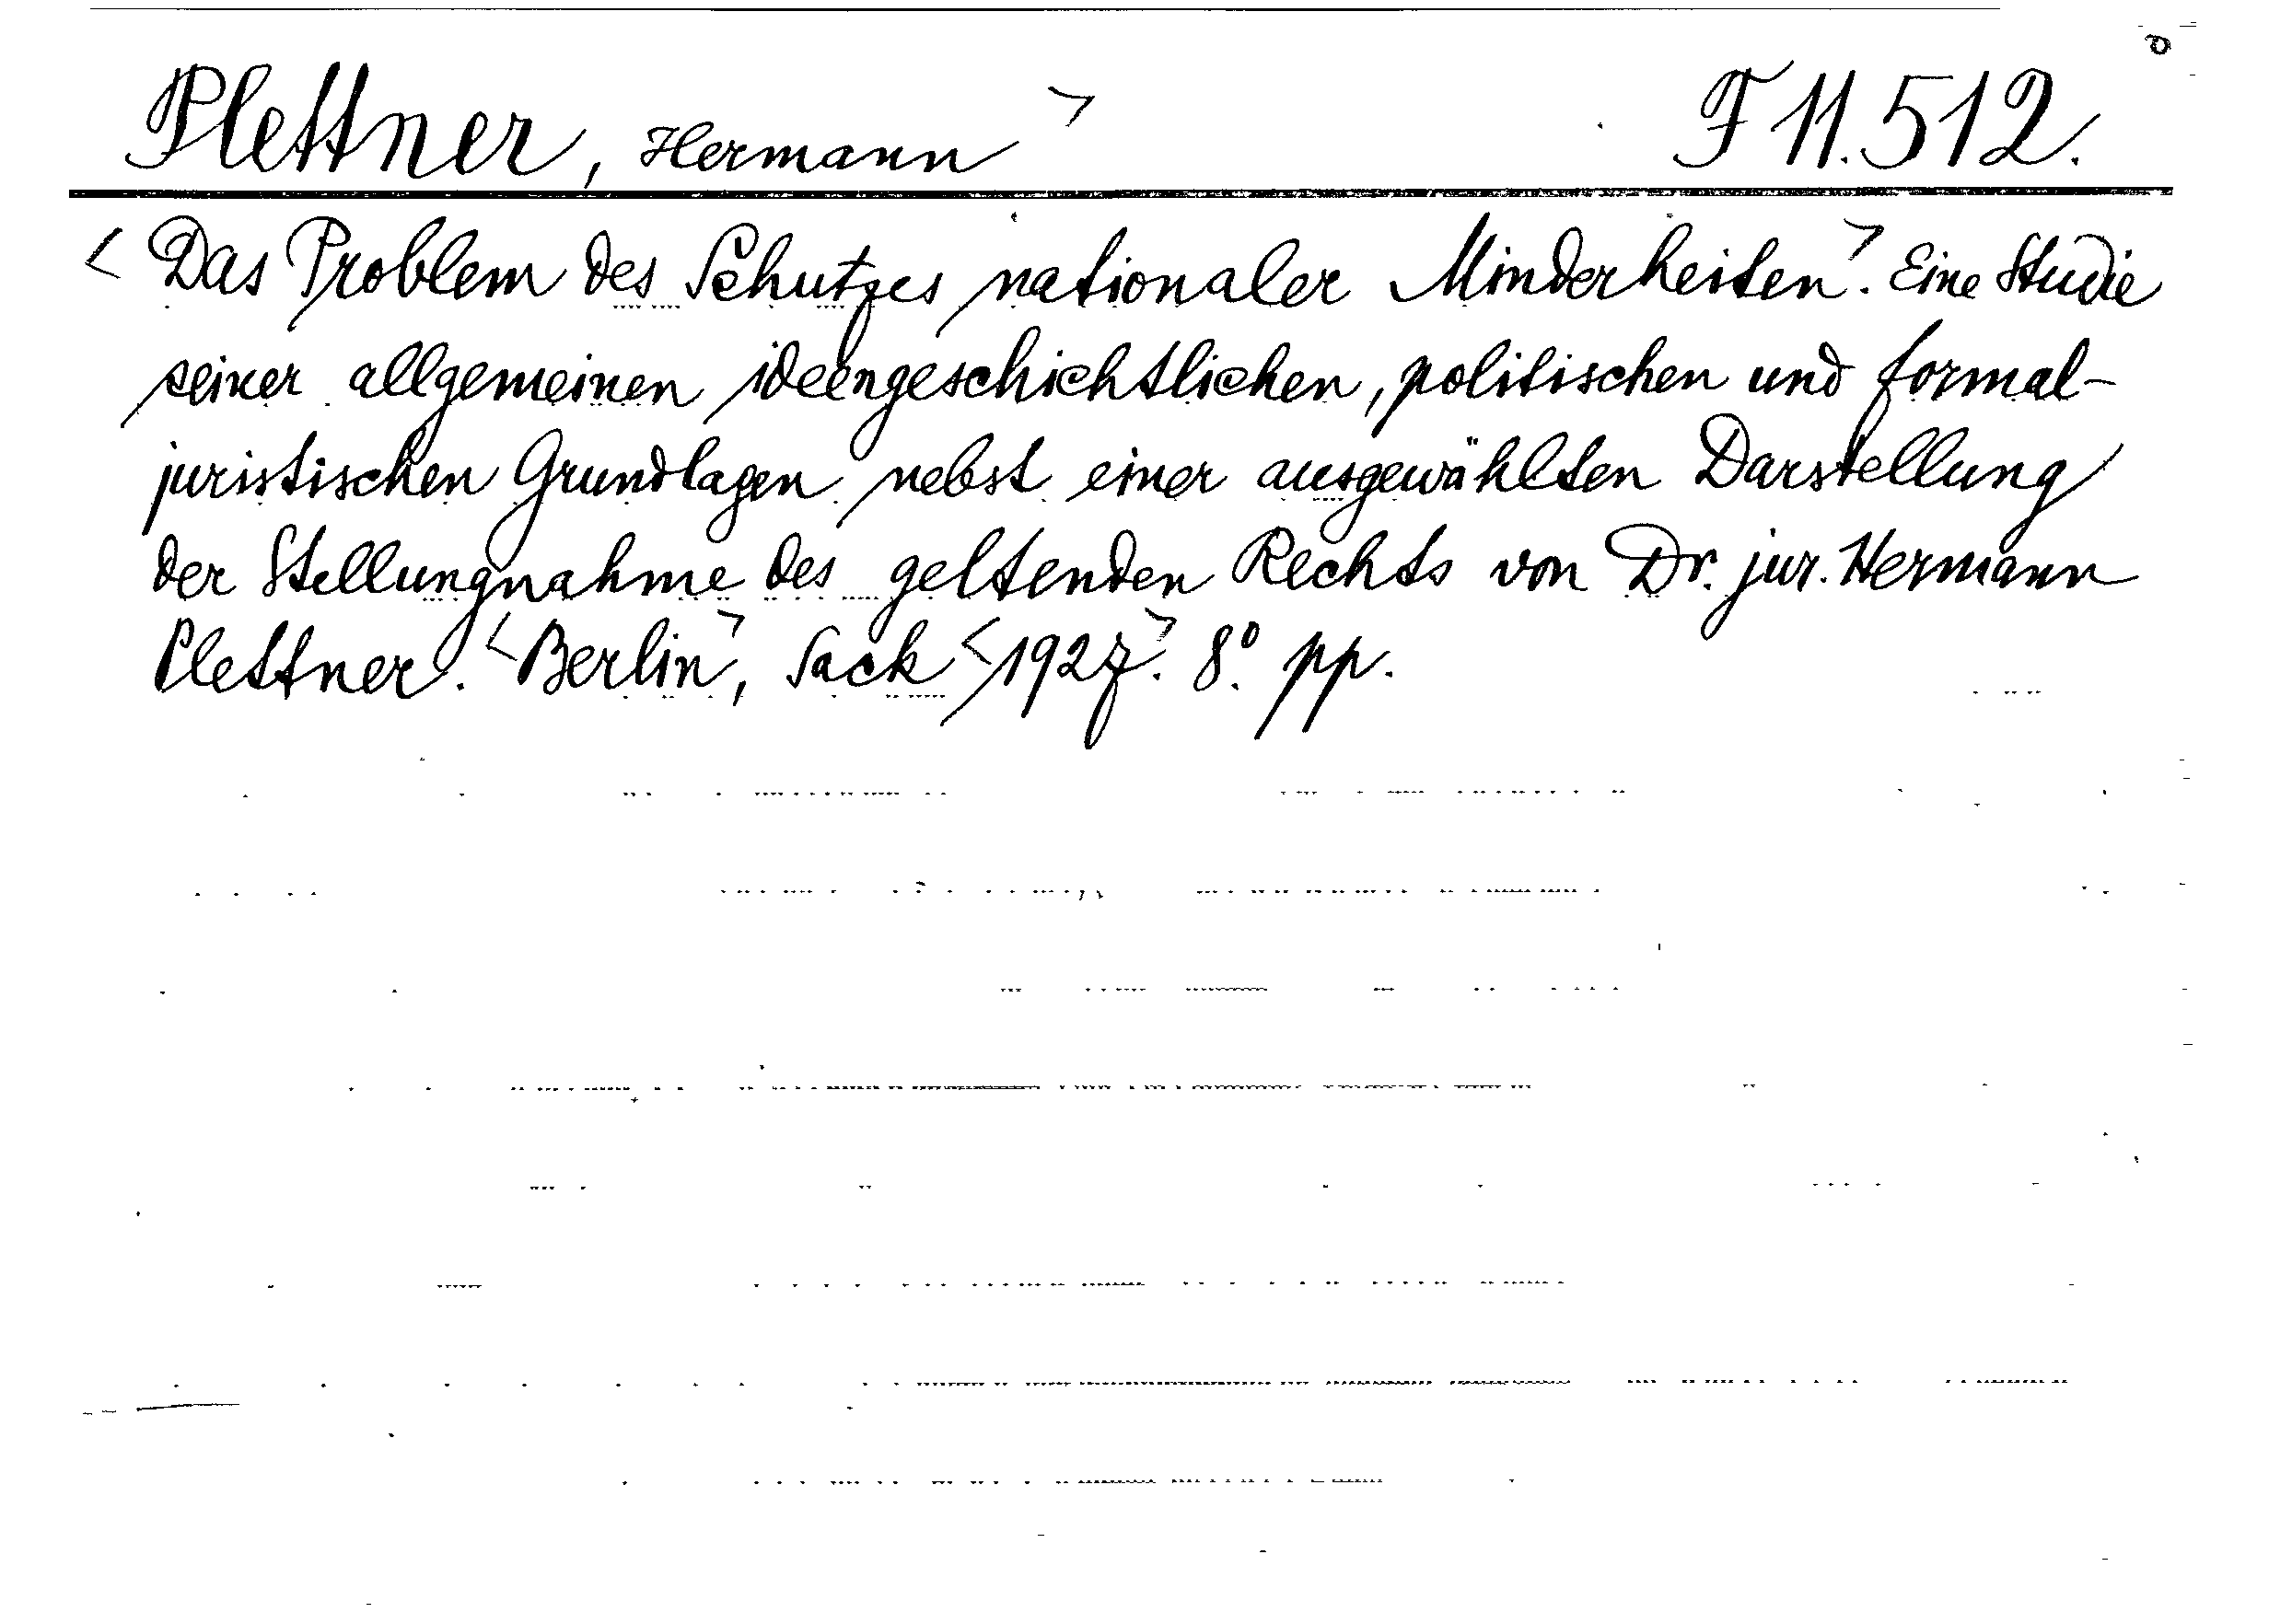 Plettner, Hermann > F 11.512.
< Das Problem des Schutzes nationaler Minderheiten >. Eine Studie
seiner allgemeinen ideengeschichtlichen, politischen und formal-
juristischen Grundlagen nebst einer ausgewählten Darstellung
der Stellungnahme des geltenden Rechts von Dr. jur. Hermann
Plettner. < Berlin >, Sack < 1927 >. 8°. pp.